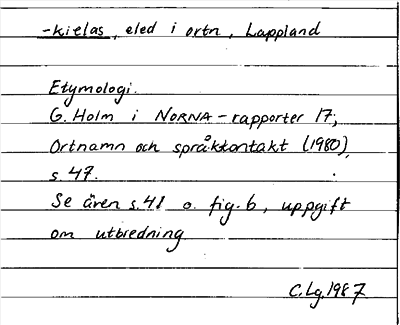 -kielas, eled i ortn, Lappland
Etymologi.
G. Holm i NORNA-rapporter 17,
Ortnamn och språkkontakt (1980),
s. 47.
Se även s. 48 o. fig. 6, uppgift
om utbredning
C.Lg.1987